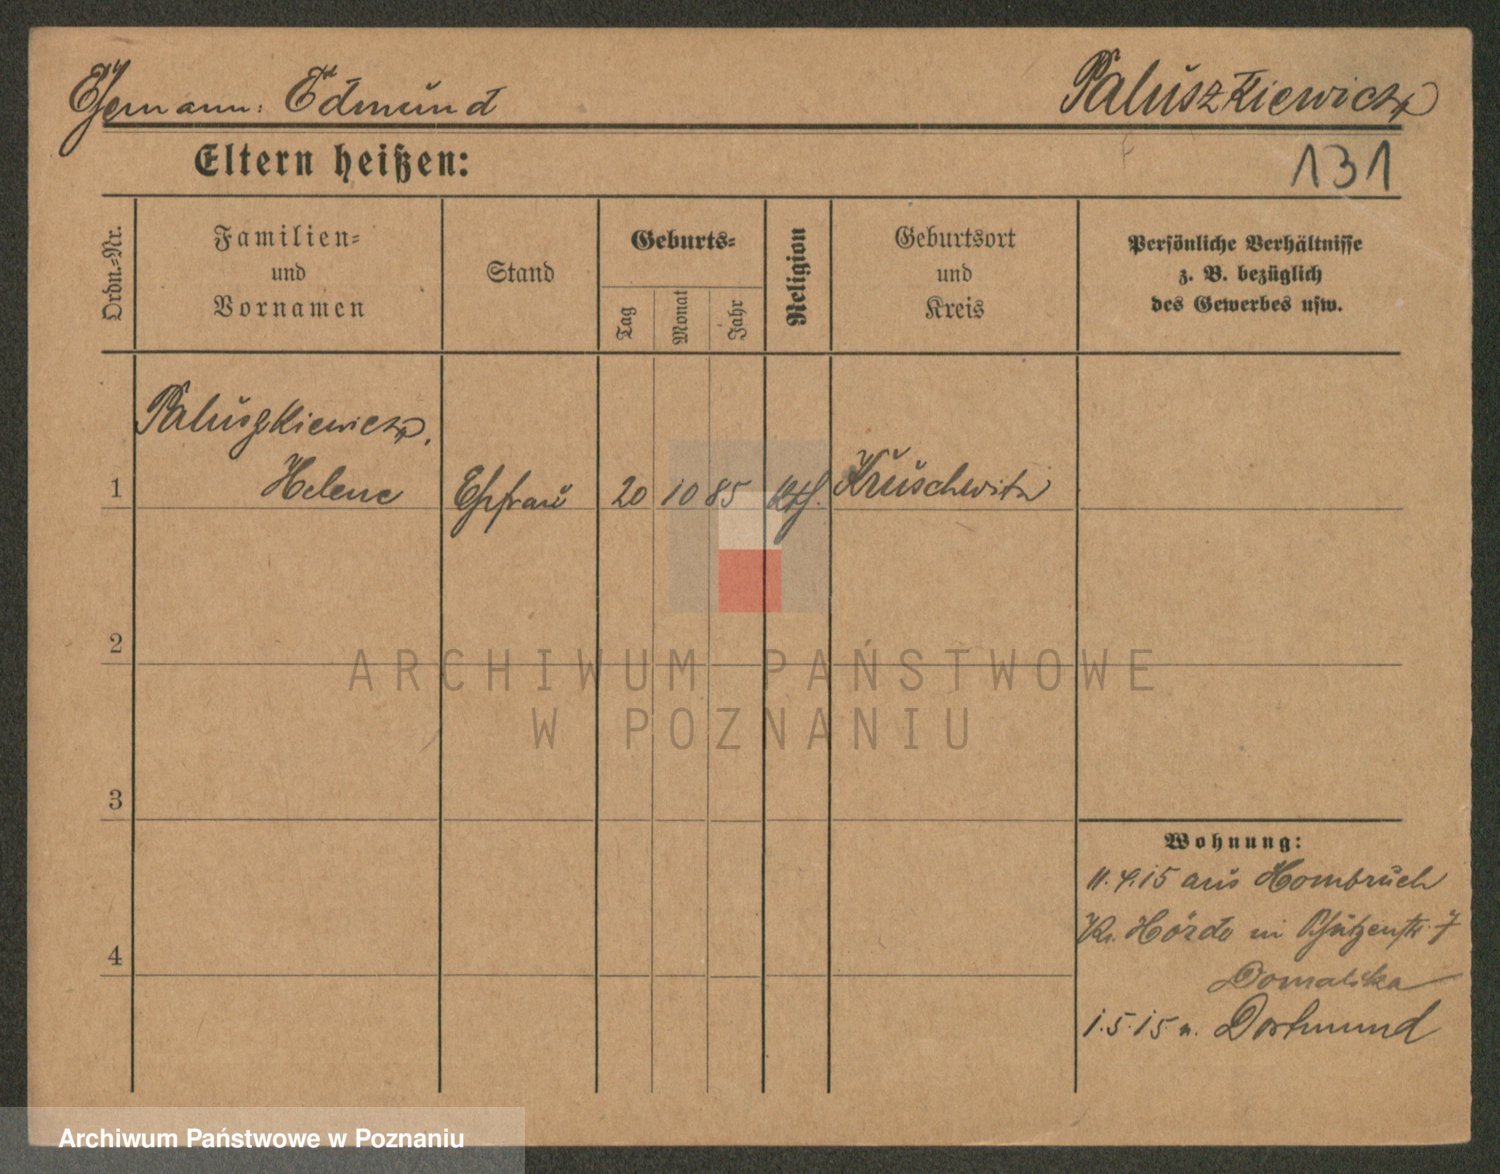 Ehemann: Edmund
Paluszkiewicz
Eltern heißen:
131
Ordn.=Nr.
Familien=
und
Vornamen
Stand
Geburts=
Tag
Monat
Jahr
Religion
Geburtsort
und
Kreis
Persönliche Verhältnisse
z. B. bezüglich
des Gewerbes usw.
Paluszkiewicz,
1 Helene Ehefrau 20 10 85 kth. Kruschwitz
2
ARCHIWUM PAŃSTWOWE
W POZNANIU
3
Wohnung:
11.4.15 aus Hombruch
Kr. Hörde in Schützenstr. 7
4
Domalska
1.5.15 n. Dortmund
Archiwum Państwowe w Poznaniu